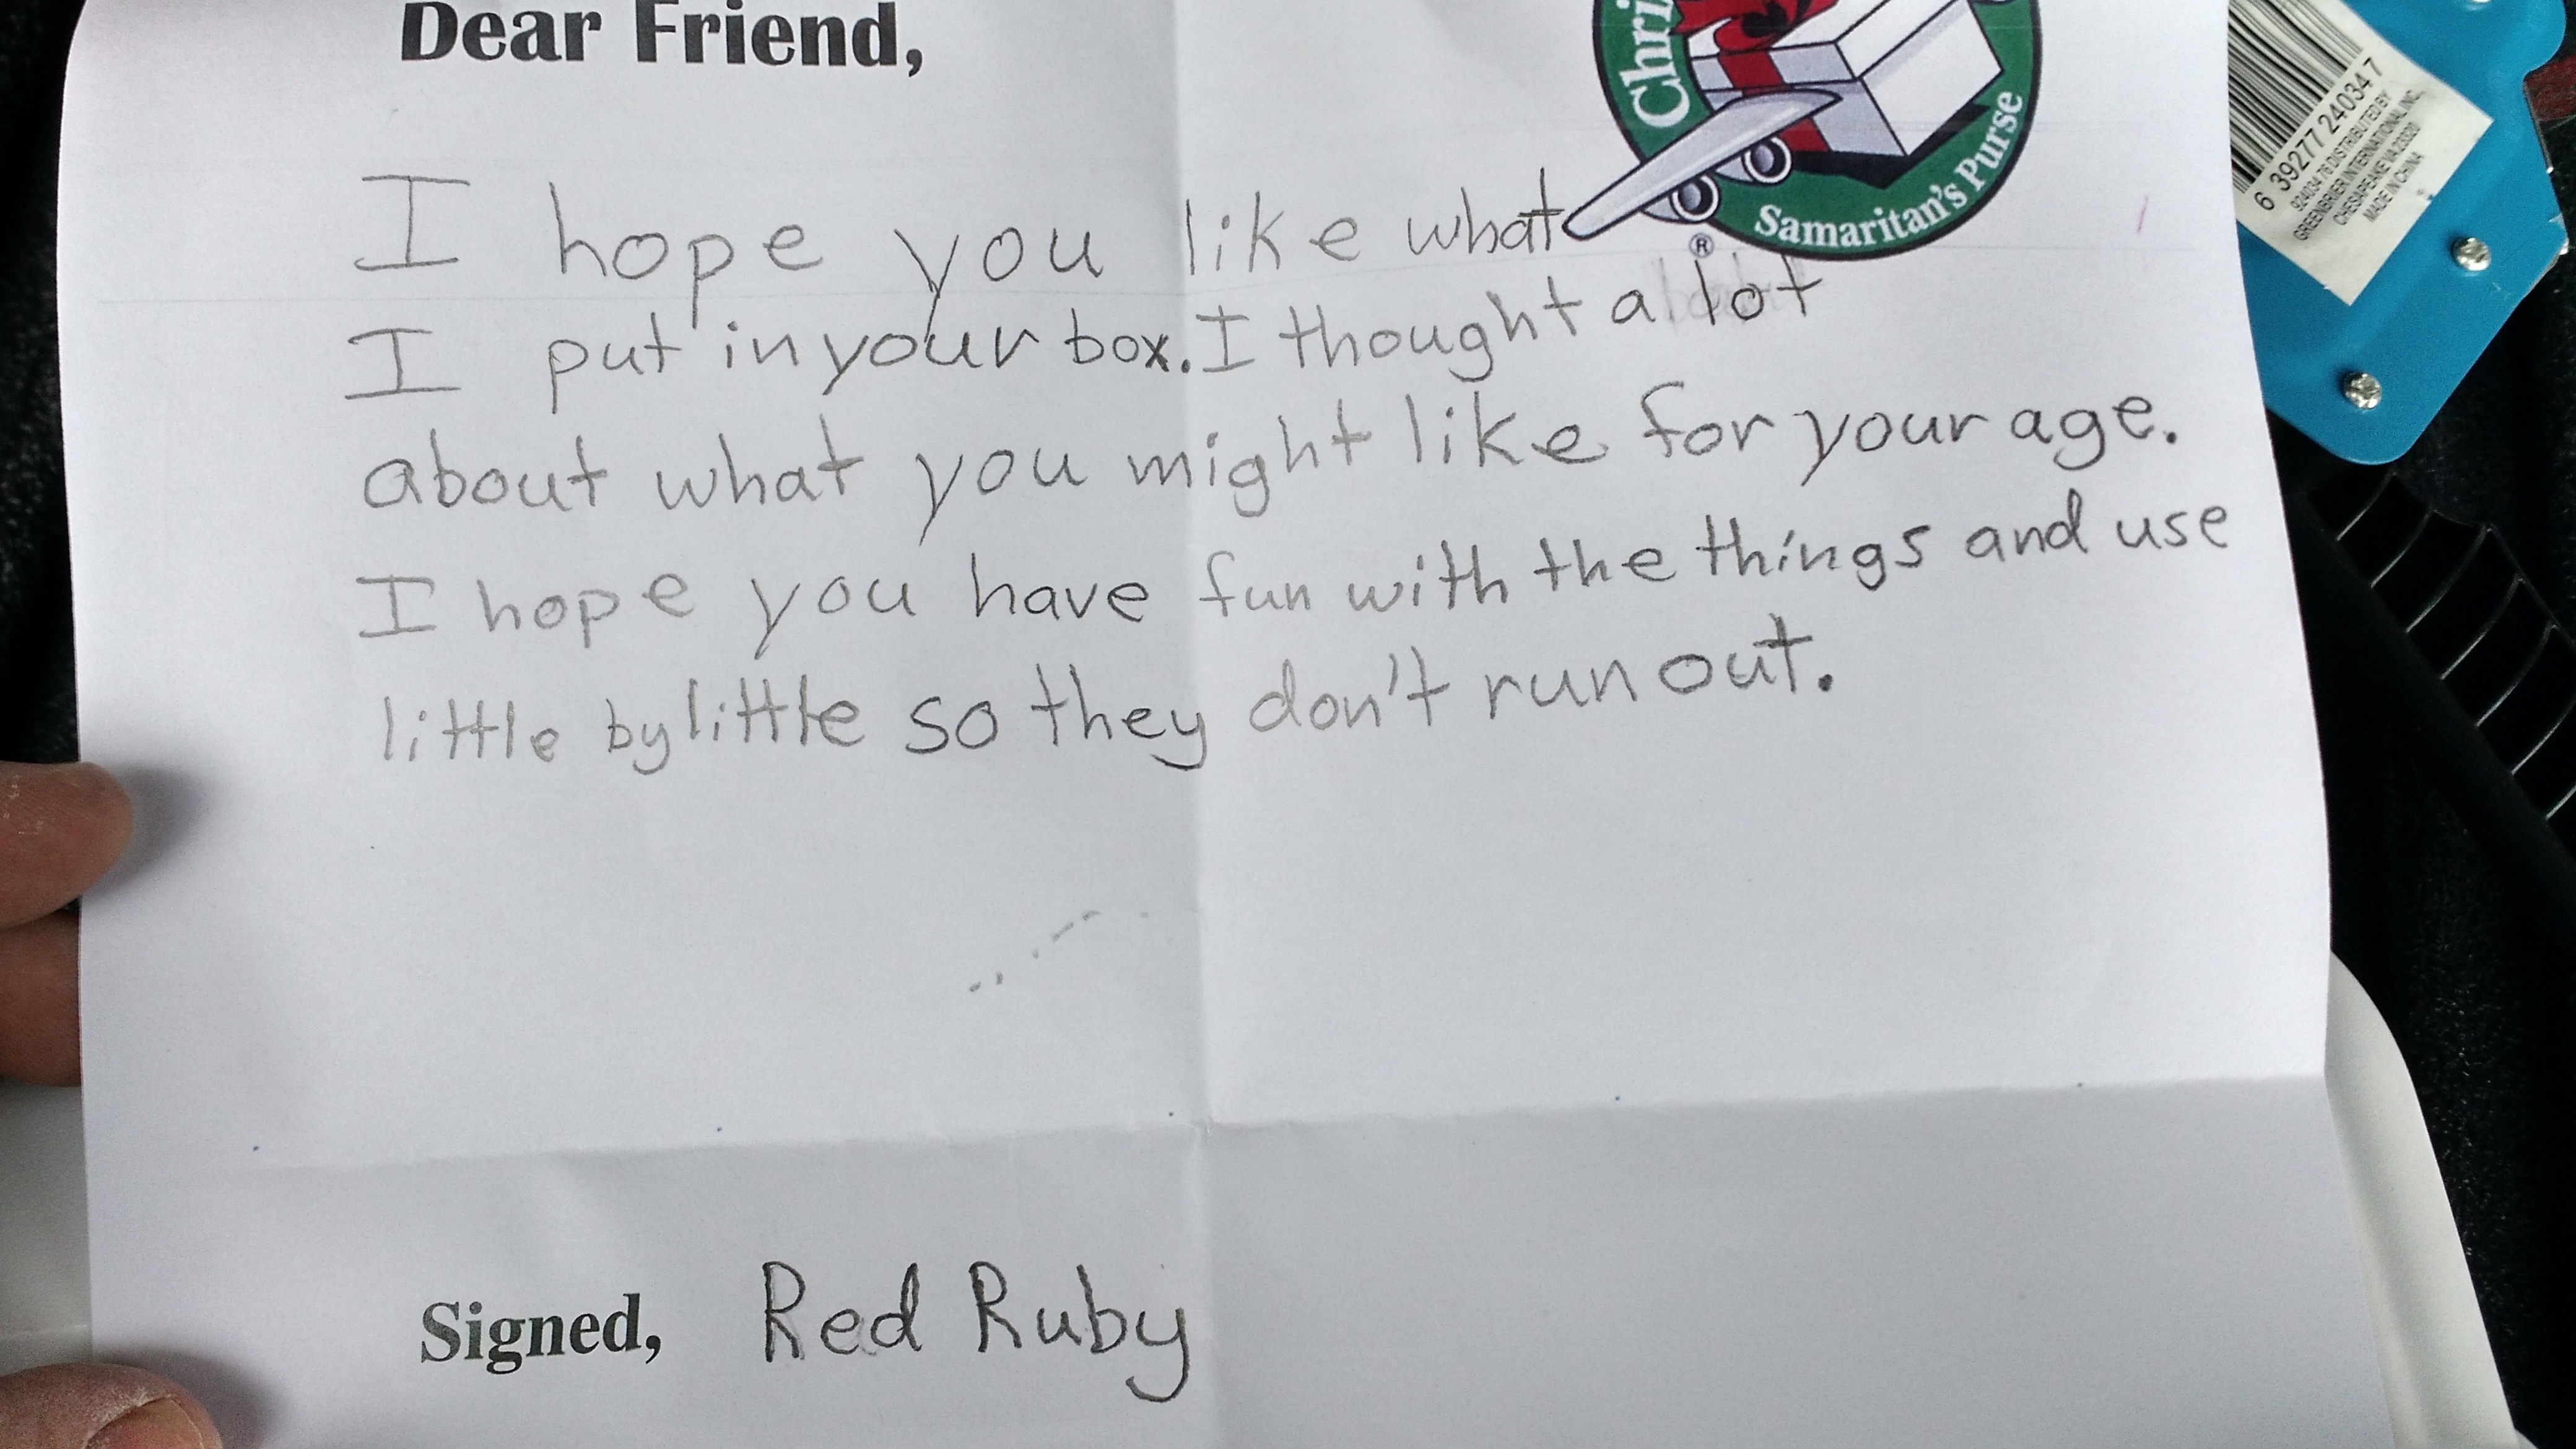 Dear Friend,
I hope you like what
I put in your box. I thought a lot
about what you might like for your age.
I hope you have fun with the things and use
little by little so they don't run out.
Signed, Red Ruby
Samaritan's Purse
®
6 39277 24034 7
DISTRIBUTED BY
GREENBRIER INTERNATIONAL, INC.
CHESAPEAKE VA 23320
MADE IN CHINA